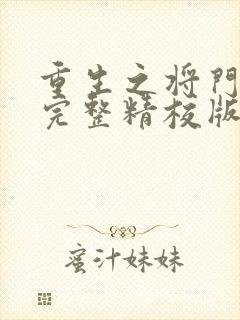 重生之将門
完整精校版
蜜汁妹妹